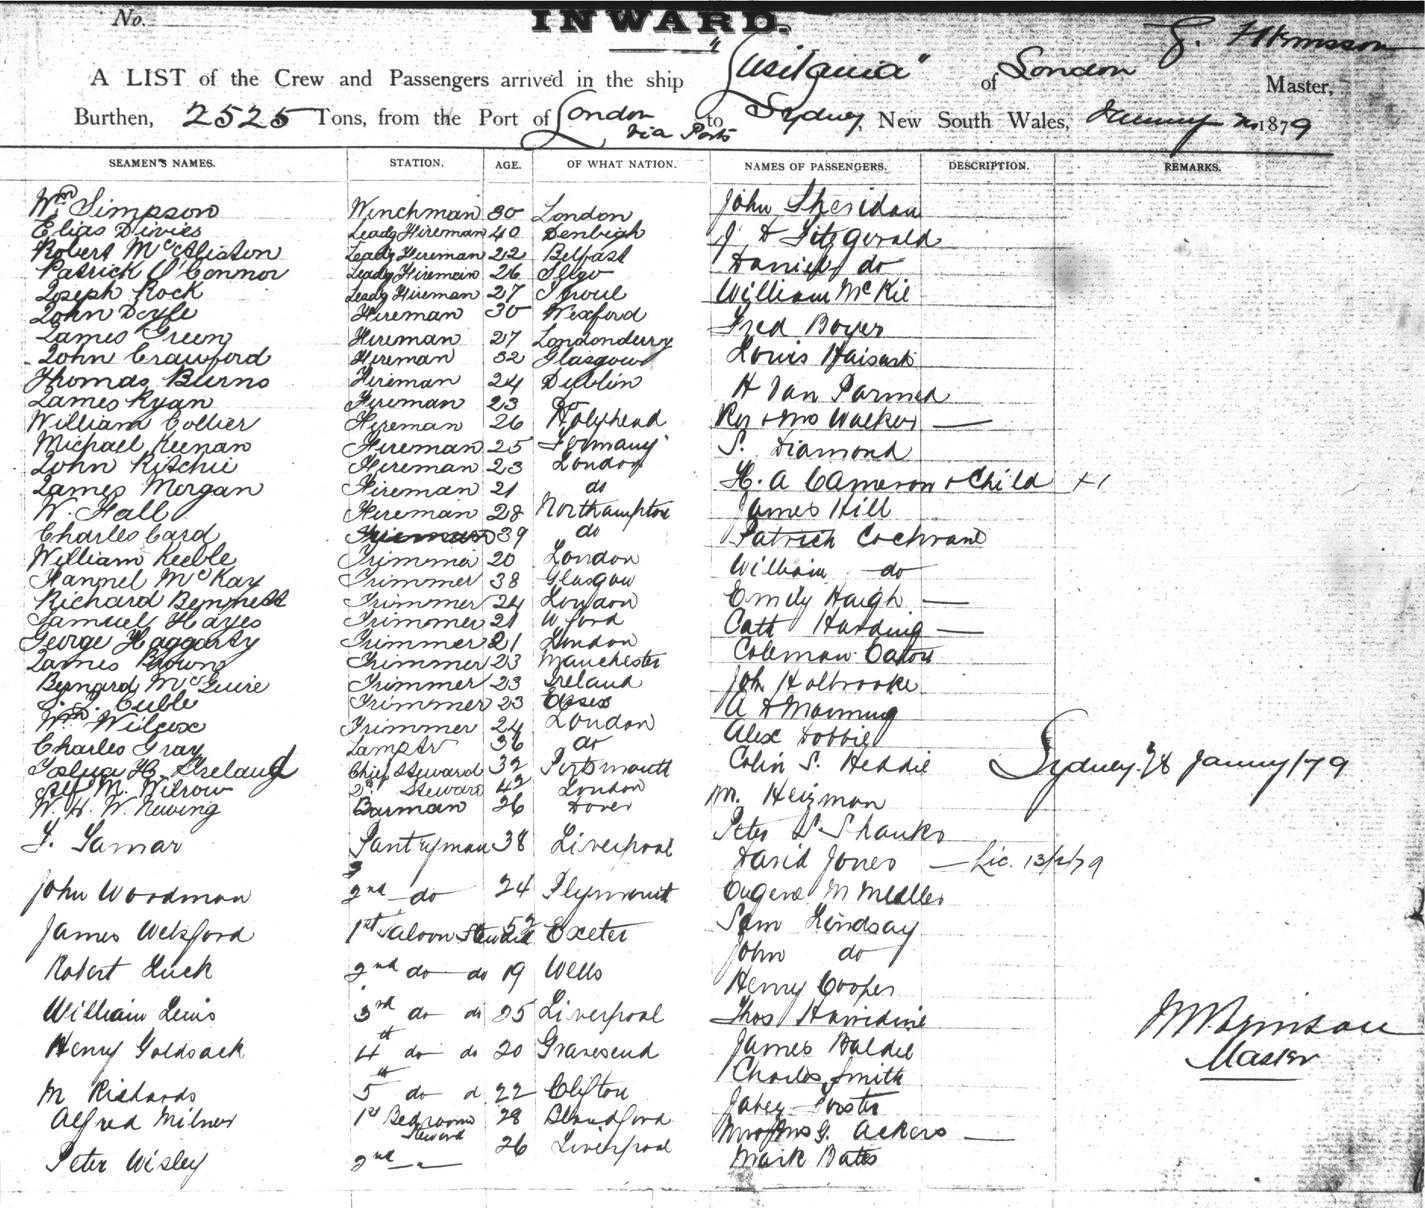 No.
INWARD.
A LIST of the Crew and Passengers arrived in the ship "Lusitania" of London Master,
Burthen, 2525 Tons, from the Port of London via Ports to Sydney, New South Wales, 1879
SEAMEN'S NAMES. STATION. AGE. OF WHAT NATION. NAMES OF PASSENGERS. DESCRIPTION. REMARKS.
Wm Simpson Winchman 30 London John Sheridan
Elias Divies Leadg Fireman 40 Denbigh J D Fitzgerald
Robert McAlister Leadg Fireman 22 Belfast Daniel do
Patrick O'Connor Leadg Fireman 26 Sligo
Joseph Rock Leadg Fireman 27 William McKie
John Doyle Fireman 30 Wexford
James Green Fireman 27 Londonderry Fred Boyer
John Crawford Fireman 32 Glasgow Louis
Thomas Burns Fireman 24 Dublin H Van
James Ryan Fireman 23 Do
William Collier Fireman 26 Holyhead Walker —
Michael Keenan Fireman 25 Germany S. Diamond
John Ritchie Fireman 23 London
James Morgan Fireman 21 do H. A Cameron & Child +1
W. Hall Fireman 28 Northampton James Hill
Charles Card 39 do Patrick Cochrane
William Keeble Trimmer 20 London William do
McKay Trimmer 38 Glasgow
Richard Bennett Trimmer 24 London Emily Haigh —
Samuel Hayes Trimmer 21 Cath Harding —
George Haggarty Trimmer 21 London
James Brown Trimmer 23 Manchester Coleman
Bernard McGuire Trimmer 23 Ireland John Holbrooke
Cuble Trimmer 23 Essex A H Manning
Wm Wilcox Trimmer 24 London Alex Dobbie
Charles Gray Lamptr 36 do
Joshua H. Ireland Chief Steward 32 Portsmouth Colin S. Heddie Sydney 28 Janury/79
M. Wilrow 2nd Steward 42 London
W. H. W. Newing Barman 26 Dover M. Heizman
Peter S Shanks
Lamar Pantryman 38 Liverpool
David Jones — Lic. 13/2/79
John Woodman 2nd do 24 Plymouth Eugene M
James Welsford 1st Saloon Steward 52 Exeter Sam Lindsay
John do
Robert Luck 2nd do do 19 Wells
Henry Cooper
William Lewis 3rd do do 25 Liverpool Thos
Henry Goldsack 4th do do 20 Gravesend James
Charles Smith
M Richards 5th do d 22 Clifton
Jabez Forster
Alfred Milner 1st Bedroom Steward 28 Blandford
Ackers —
Peter Wisley 2nd 26 Liverpool Mark Bates
Master